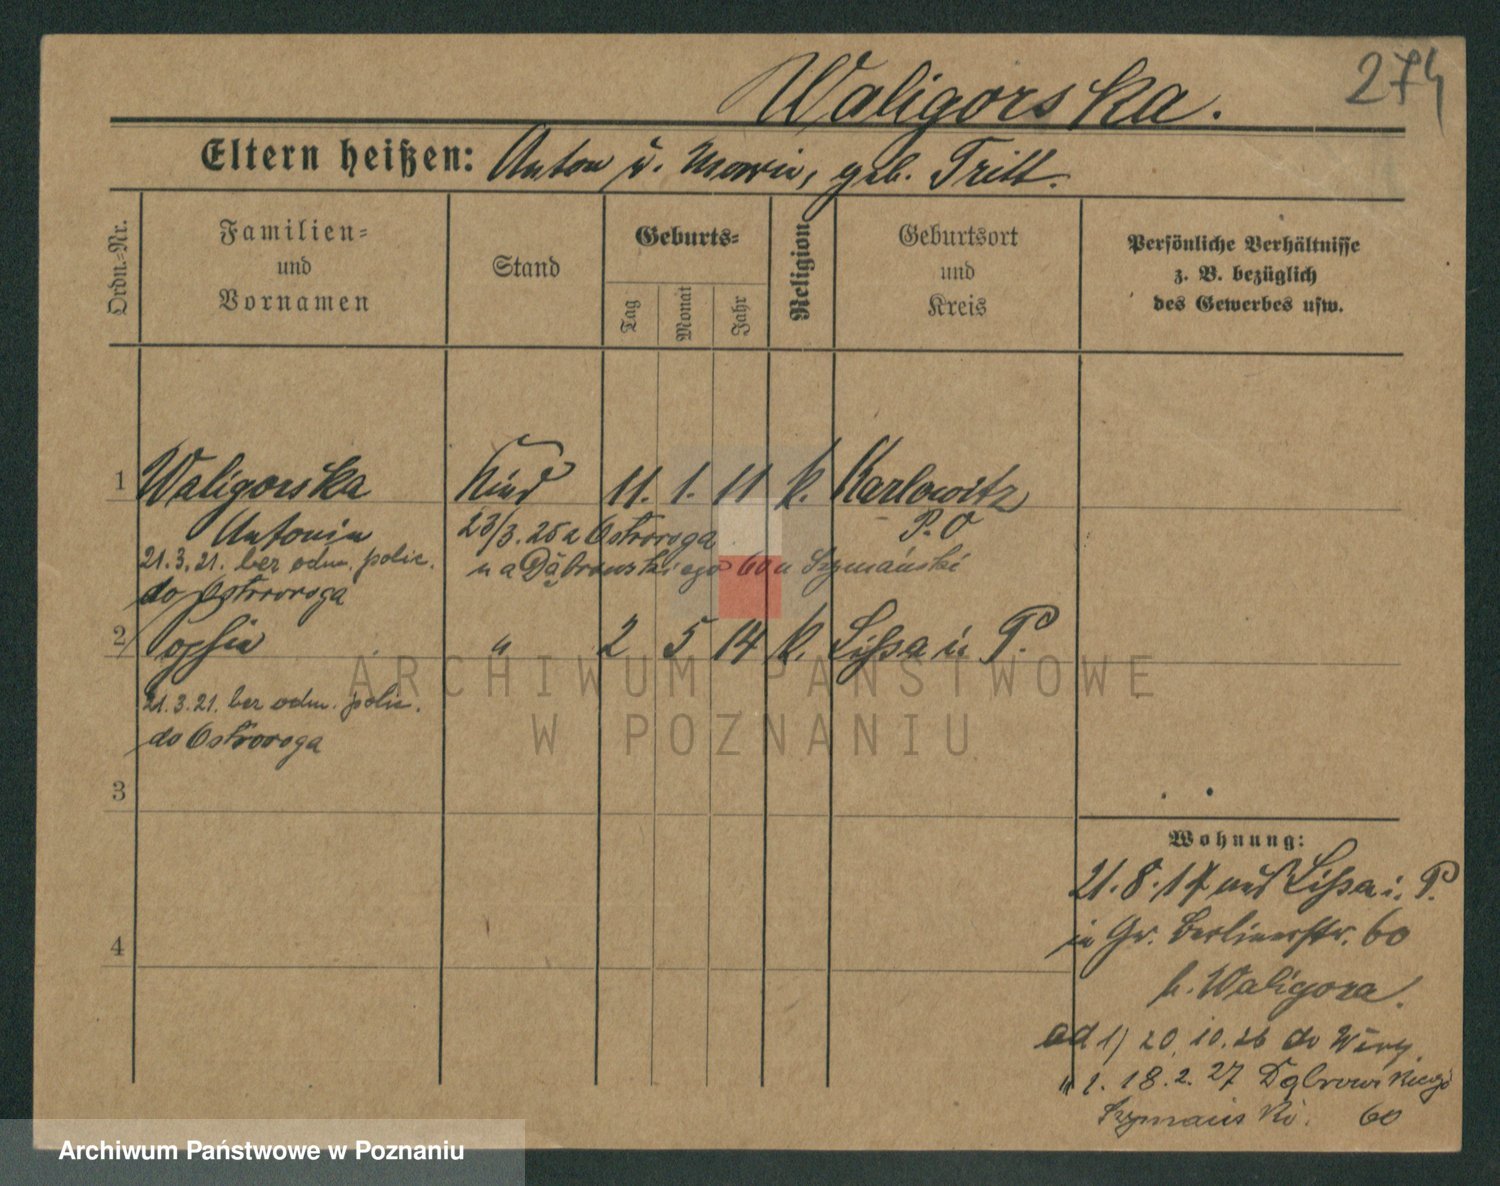 Waligorska.
274
Eltern heißen: Anton u. Maria, geb. Tritt.
Ordn.-Nr.
Familien- und Vornamen
Stand
Geburts-
Tag
Monat
Jahr
Religion
Geburtsort und Kreis
Persönliche Verhältnisse z. B. bezüglich des Gewerbes usw.
1 Waligorska Kind 11. 1. 11 k. Karlowitz
Antonin P. O
23/3. 25 z Ostroroga
21.3.21. bez odm. polic.
na Dąbrowskiego 60 u Szymański
do Ostroroga
2 Sophia " 2 5 14 k. Lissa i. P.
21.3.21. bez odm. polic.
do Ostroroga
3
4
Wohnung:
21.8.17 aus Lissa i. P.
in Gr. Berlinerstr. 60
b. Waligora.
ad 1) 20.10.26 do
" 1. 18.2.27 Dąbrowskiego
Szymański. 60
ARCHIWUM PAŃSTWOWE
W POZNANIU
Archiwum Państwowe w Poznaniu